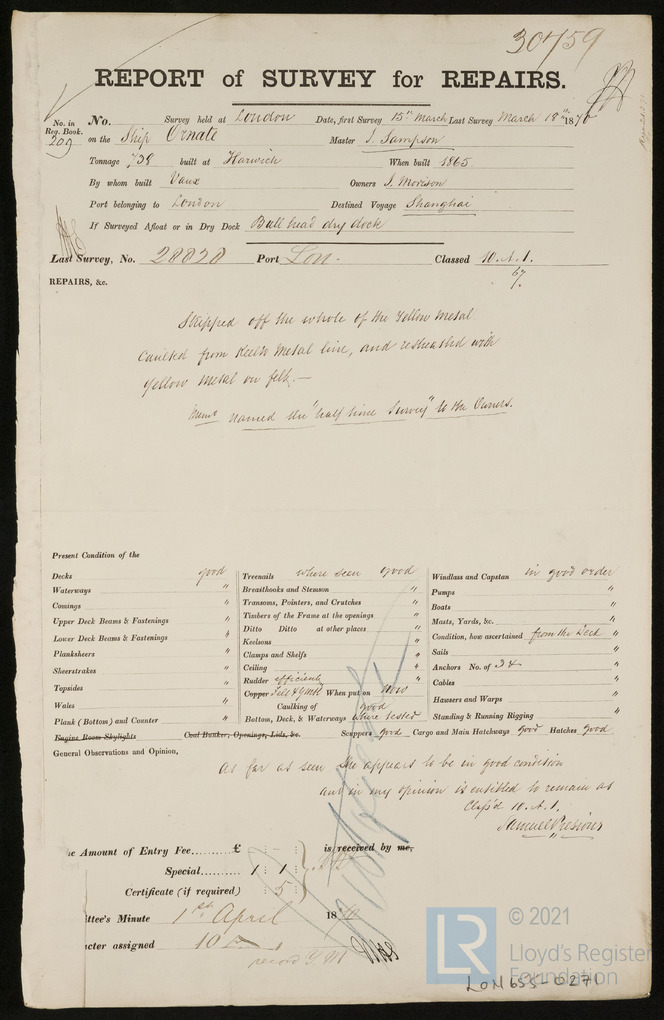 30759
REPORT of SURVEY for REPAIRS.
No. in Reg. Book. 209
No. Survey held at London Date, first Survey 15th March Last Survey March 18th 1870
on the Ship Ornate Master J. Sampson
Tonnage 738 built at Harwich When built 1865
By whom built Vaux Owners J. Morison
Port belonging to London Destined Voyage Shanghai
If Surveyed Afloat or in Dry Dock Bull head dry dock
Last Survey, No. 28828 Port Lon. Classed 10.A.1.
67
REPAIRS, &c.
Stripped off the whole of the Yellow Metal
Caulked from Keel to Metal line, and resheathed with
Yellow Metal on felt.—
named the "half time Survey" to the Owners.
Present Condition of the
Decks good
Waterways "
Comings "
Upper Deck Beams & Fastenings "
Lower Deck Beams & Fastenings "
Planksheers "
Sheerstrakes "
Topsides "
Wales "
Plank (Bottom) and Counter "
Engine Room Skylights Coal Bunker, Openings, Lids, &c.
Treenails where seen good
Breasthooks and Stemson "
Transoms, Pointers, and Crutches "
Timbers of the Frame at the openings "
Ditto Ditto at other places "
Keelsons "
Clamps and Shelfs "
Ceiling "
Rudder efficient "
Copper When put on now
Caulking of good
Bottom, Deck, & Waterways where tested
Windlass and Capstan in good order
Pumps "
Boats "
Masts, Yards, &c. "
Condition, how ascertained from the Deck "
Sails "
Anchors No. of "
Cables "
Hawsers and Warps "
Standing & Running Rigging "
Scuppers good Cargo and Main Hatchways good Hatches good
General Observations and Opinion,
As far as seen She appears to be in good condition
and in my opinion is entitled to remain as
Class'd 10.A.1.
Samuel
e Amount of Entry Fee......... £ : : is received by me,
Special......... 1 : 1 :
Certificate (if required) : 5 :
ttee's Minute 1st April 1870
cter assigned 10
record Y.M.
© 2021
LR Lloyd's Register
Foundation
LON655-0271